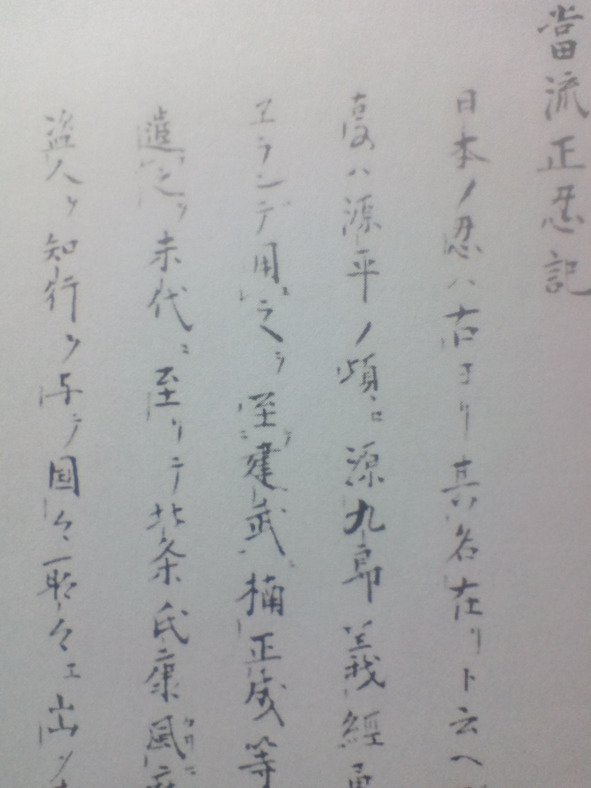 當流正忍記
日本ノ忍ハ古ヨリ其名在リト云へ
度ハ源平ノ頃ニ源九郎義經勇
ヱランデ用之ヲ至建武楠正成等
遣之ヲ末代ニ至リテ北条氏康風
盗人ヲ知行ヲ与テ国々聊々ヱ出シ